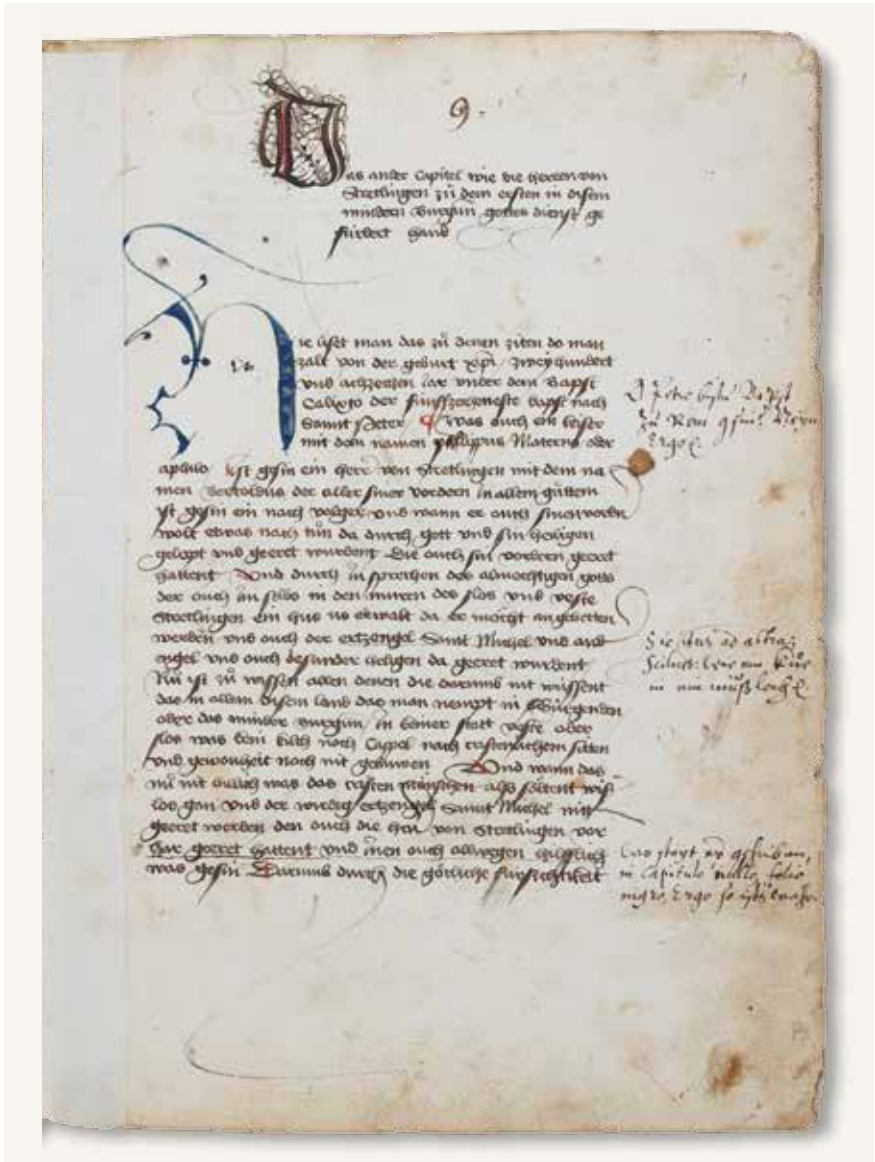 9.
Das ander Capitel wie die herren von
Stretlingen zů dem ersten in disem
mindern Burgun gottes dienst ge
fürdert hand
Hie liset man das zů denen ziten do man
zalt von der geburt xpi zwey hundert
vnd achzechen iar vnder dem Bapst
Calixto der fünffzecheneste bapst nach
Sannt Peter Was ouch ein keiser
mit dem namen phillippus Maternus oder
ist gesin ein herr von Stretlingen mit dem na
men Bertoldus der aller siner vordern in allem gůttem
ist gesin ein nach volger vnd wann er ouch sinen vordren
wolt etwas nach tůn da durch gott vnd sin heiligen
gelopt vnd geeret wurdent Die ouch sin vordren geeret
hattent Vnd durch in sprechen des almechtigen gotts
der ouch im selbs in den muren des slos vnd veste
Stretlingen ein hus us erwalt da er möcht angebetten
werden vnd ouch der ertzengel Sannt Michel vnd and
engel vnd ouch besunder heligen da geeret wurdent
Nů ist zů wissen allen denen die darumb nit wissent
das in allem disem land das man nempt in Burgenden
oder das minder burgun in keiner statt veste oder
slos was kein kilch noch Cappel nach cristenlichem sitten
vnd gewonheit noch nit gebuwen Vnd wann das
nu nit billich was das cristen mönschen also soltent wiß
los gan vnd der wirdig ertzengel Sannt Michel nitt
geeret werden den ouch die hern von Stretlingen vor
har geeret hattent vnd inen ouch allwegen hilfflich
was gesin Darumb durch die götliche fürsichtikeit
zů Rom
Ergo
in capitulo nullo folio
nigro, Ergo so